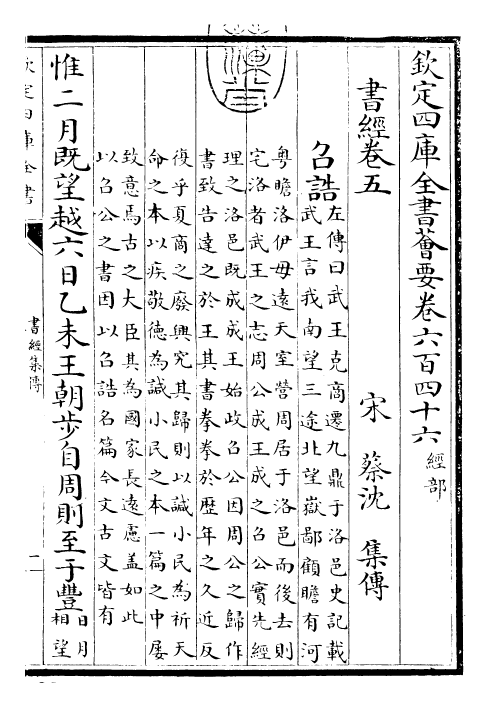 欽定四庫全書薈要卷六百四十六 經部
書經卷五
宋 蔡沈 集傳
召誥
左傳曰武王克商遷九鼎于洛邑史記載
武王言我南望三途北望嶽鄙顧瞻有河
粤瞻洛伊毋遠天室營周居于洛邑而後去則
宅洛者武王之志周公成王成之召公實先經
理之洛邑既成成王始政召公因周公之歸作
書致告達之於王其書拳拳於歴年之久近反
復乎夏商之廢興究其歸則以諴小民為祈天
命之本以疾敬德為諴小民之本一篇之中屡
致意焉古之大臣其為國家長遠慮盖如此
以召公之書因以召誥名篇今文古文皆有
惟二月既望越六日乙未王朝步自周則至于豐
日月
相望
欽定四庫全書
書經集傳
一